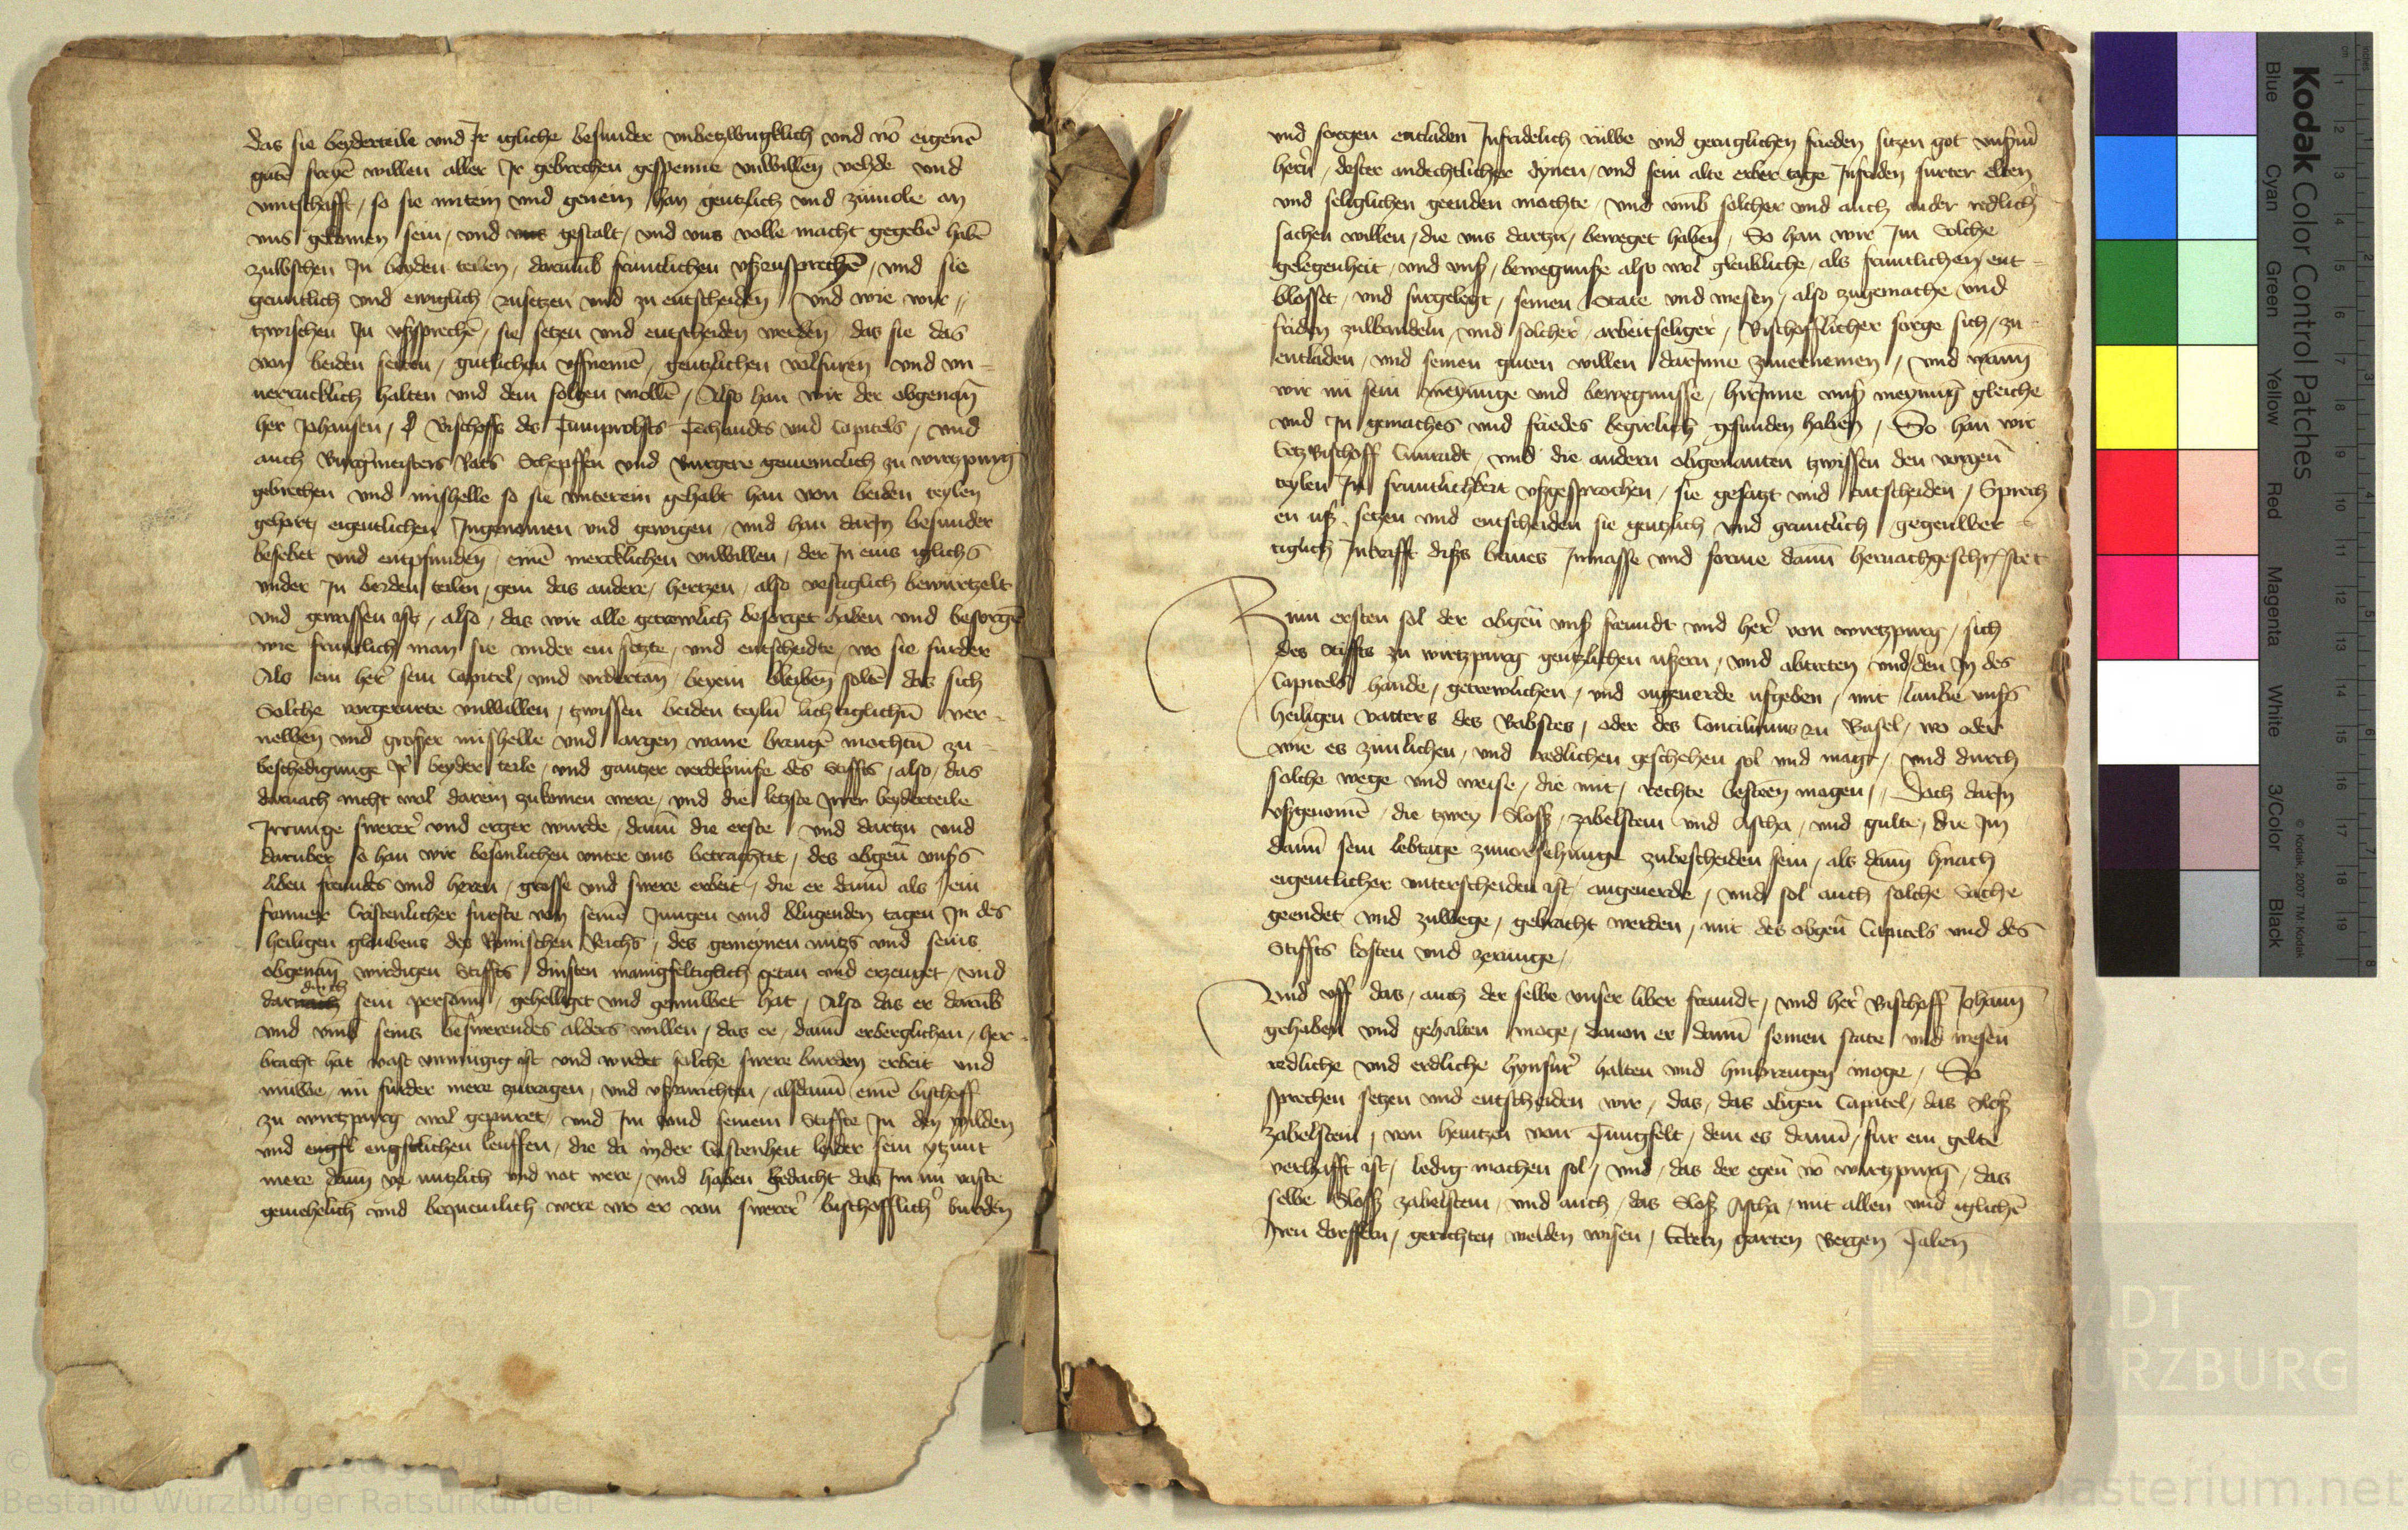 das sie beyderteile und Jr igliche besunder unbetzwngklich und vō eigenē
gutē freyē willen aller Jr gebrechen gespenne unwillen vehde und
vintschafft / so sie mitein und genein han gentzlich und zumole an
uns gekomen sein / und gestalt / und uns volle macht gegebē habē
zwischen Jn beyden teilen / darumb fruntlichen ußzusprechē / und sie
gruntlich und ewiglich zusetzen und zu entscheiden / Und wie wir //
tzwischen Jn ußsprechē / sie setzen und entscheiden werden das sie das
von beiden seiten / gutlichen uffnemē / gentzlichen volfuren und un-
verrucklich halten und dem folgen wollē / Also han wir der obgenañ
her Johansen / Bischoffs des Tumprobsts Techandts und Capitels / und
auch Burgmeisters Rats Schepffen und Burgere gemeinclich zu wirtzpurg
gebrechen und mishelle so sie unterein gehabt han von beiden teylen
gehort / eigentlichen Jngenomen und gewigen / und han darJn besunder
besebet und entpfunden / einē mercklichen unwillen / der Jn eins iglichs
under Jn beiden teilen / gein das andere / hertzen / also vestiglich bewurtzelt
und gewassen ist / also / das wir alle getrewlich besorget haben und besorgē
wie fruntlich man sie under ein setzte / und entscheidte / wo sie furder
Als ein her sein Capitel / und undertan / beyein bleiben soltē das sich
Solche vorgerurte unwillen / tzwissen beiden teylñ lichtiglichñ ver-
newen und grosser mishelle und argen wane brengē mochtñ zu-
beschedigunge Jr beyder teile / und gantzer verdepnise des Stiffts / also / das
darnach nicht wol darein zukomen were / und die letzste Jrrer beyderteile
Jrrunge swerer und erger wurde / dann die erste / und dartzu und
daruber so han wir besonlichen unter uns betrachtet / des obgeñ unsers
liben frundts und heren / grosse und swere erbeit / die er dann als / ein
frumer Cristenlicher furste von seinē Jungen und klugenden tagen Jn des
heiligen glaubens des Romischen Reichs / des gemeynen nutzs und seins
obgenañ wirdigen Stiffts dinsten manigfeltiglich getan und erzeuget / und
dardurch sein personñ / gehelliget und gemuwet hat / Also das er darūb
und umb seins beswerendes alders willen / das er / dann erberglichen / her-
bracht hat vast unmugig ist und wirdet solche swere burden erbeit und
muwe / nu furder mere zutragen / und ußzurichten / alsdann einē bischoff
zu wirtzpurg wol gepuret / und Jm und seinem Stiffte Jn den wilden
und engstlichen leuffen / die da Jnder Cristenheit leider sein ytzunt
mere dann ye nutzlich und not were / und haben bedacht das Jm nu vaste
gemehelich und bequemlich were wo er von swerer bischofflich burden
und sorgen entladen Jnfridelich ruwe und geruglichen frieden sitzen got unsern
hern / dester andechtlicher dynen / und sein alte erber tage Jnfriden furter
und seliglichen geenden mochte / und umb solcher und auch ander redlich
sachen willen / die uns dartzu / beweget haben / So han wir Jm Solche
gelegenheit / und unß / bewegnuße also wol gleubliche / als fruntlichen ent-
blosset / und furgelegt / seinen State und wesen / also zugemache und
friden zuwandeln / und solcher / arbeitseliger / Bischofflicher sorge sich / zu-
entladen / und seinen guten willen darJnne zuvernemen / und wann
wir nu sein meynunge und bewegnisse / hirJnne unß meynung gleiche
und Jn gemaches und friedes begirlich gefunden haben / So han wir
Ertzbischoff Cunradt / und die andern obgenanten tzwissen den vorgeñ
teylen Jn fruntlichkeit ußgesprochen / sie gesatzt und entscheiden / Sprech
en uß setzen und entscheiden sie gentzlich und gruntlich / gegenwer-
tiglich Jnkrafft dißs brives Jnmasse und forme dann hernachgeschr / stet
Zum ersten sol der obgeñ unß frundt und her von wirtzpurg / sich
des Stiffts zu wirtzpurg gentzlichen ußern / und abtreten und den Jn des
Capitels hande / getrewlichen / und ongeverde ufgeben / mit laube unßs
heiligen vatters des Babstes / oder des Conciliums zu Basel / wo oder
wie es zimlichen / und redlichen geschehen sol und mage / und durch
solche wege und weise / die mit / rechte besteen mogen / Doch darJn
ußgenomē / die tzwey Sloß / zabelstein und Ascha / und gulte / die Jm
dann sein lebtage zuversehunge zubescheiden sein / als dann hnach
eigentlicher unterscheiden ist / angeverde / und sol auch solche Sache
geendet und zuwege / gebracht werden / mit des obgeñ Capitels und des
Stiffts kosten und zerunge /
Und uff das / auch der selbe unser liber frundt / und her Bischoff Johann
gehaben und gehalten moge / davon er dann seinen state und wesen
redliche und erdliche hynfur halten und hinbrengen moge / So
sprechen setzen und entscheiden wir / das / das obgeñ Capitel / das Sloß
zabelstein / von heintzen von Tungfelt / dem es dann / fur ein gelte
verhafft ist / ledig machen sol / und / das der egeñ vō wirtzpurg / das
selbe Sloß zabelstein / und auch / das Sloß Ascha / mit allen und iglichē
Jren dorffern / gerichten welden wisen / Eckern garten Bergen Talen
Kodak Color Control Patches
Blue Cyan Green Yellow Red Magenta White 3/Color Black
© Kodak 2007 TM: Kodak
STADT
WÜRZBURG
Bestand Würzburger Ratsurkunden